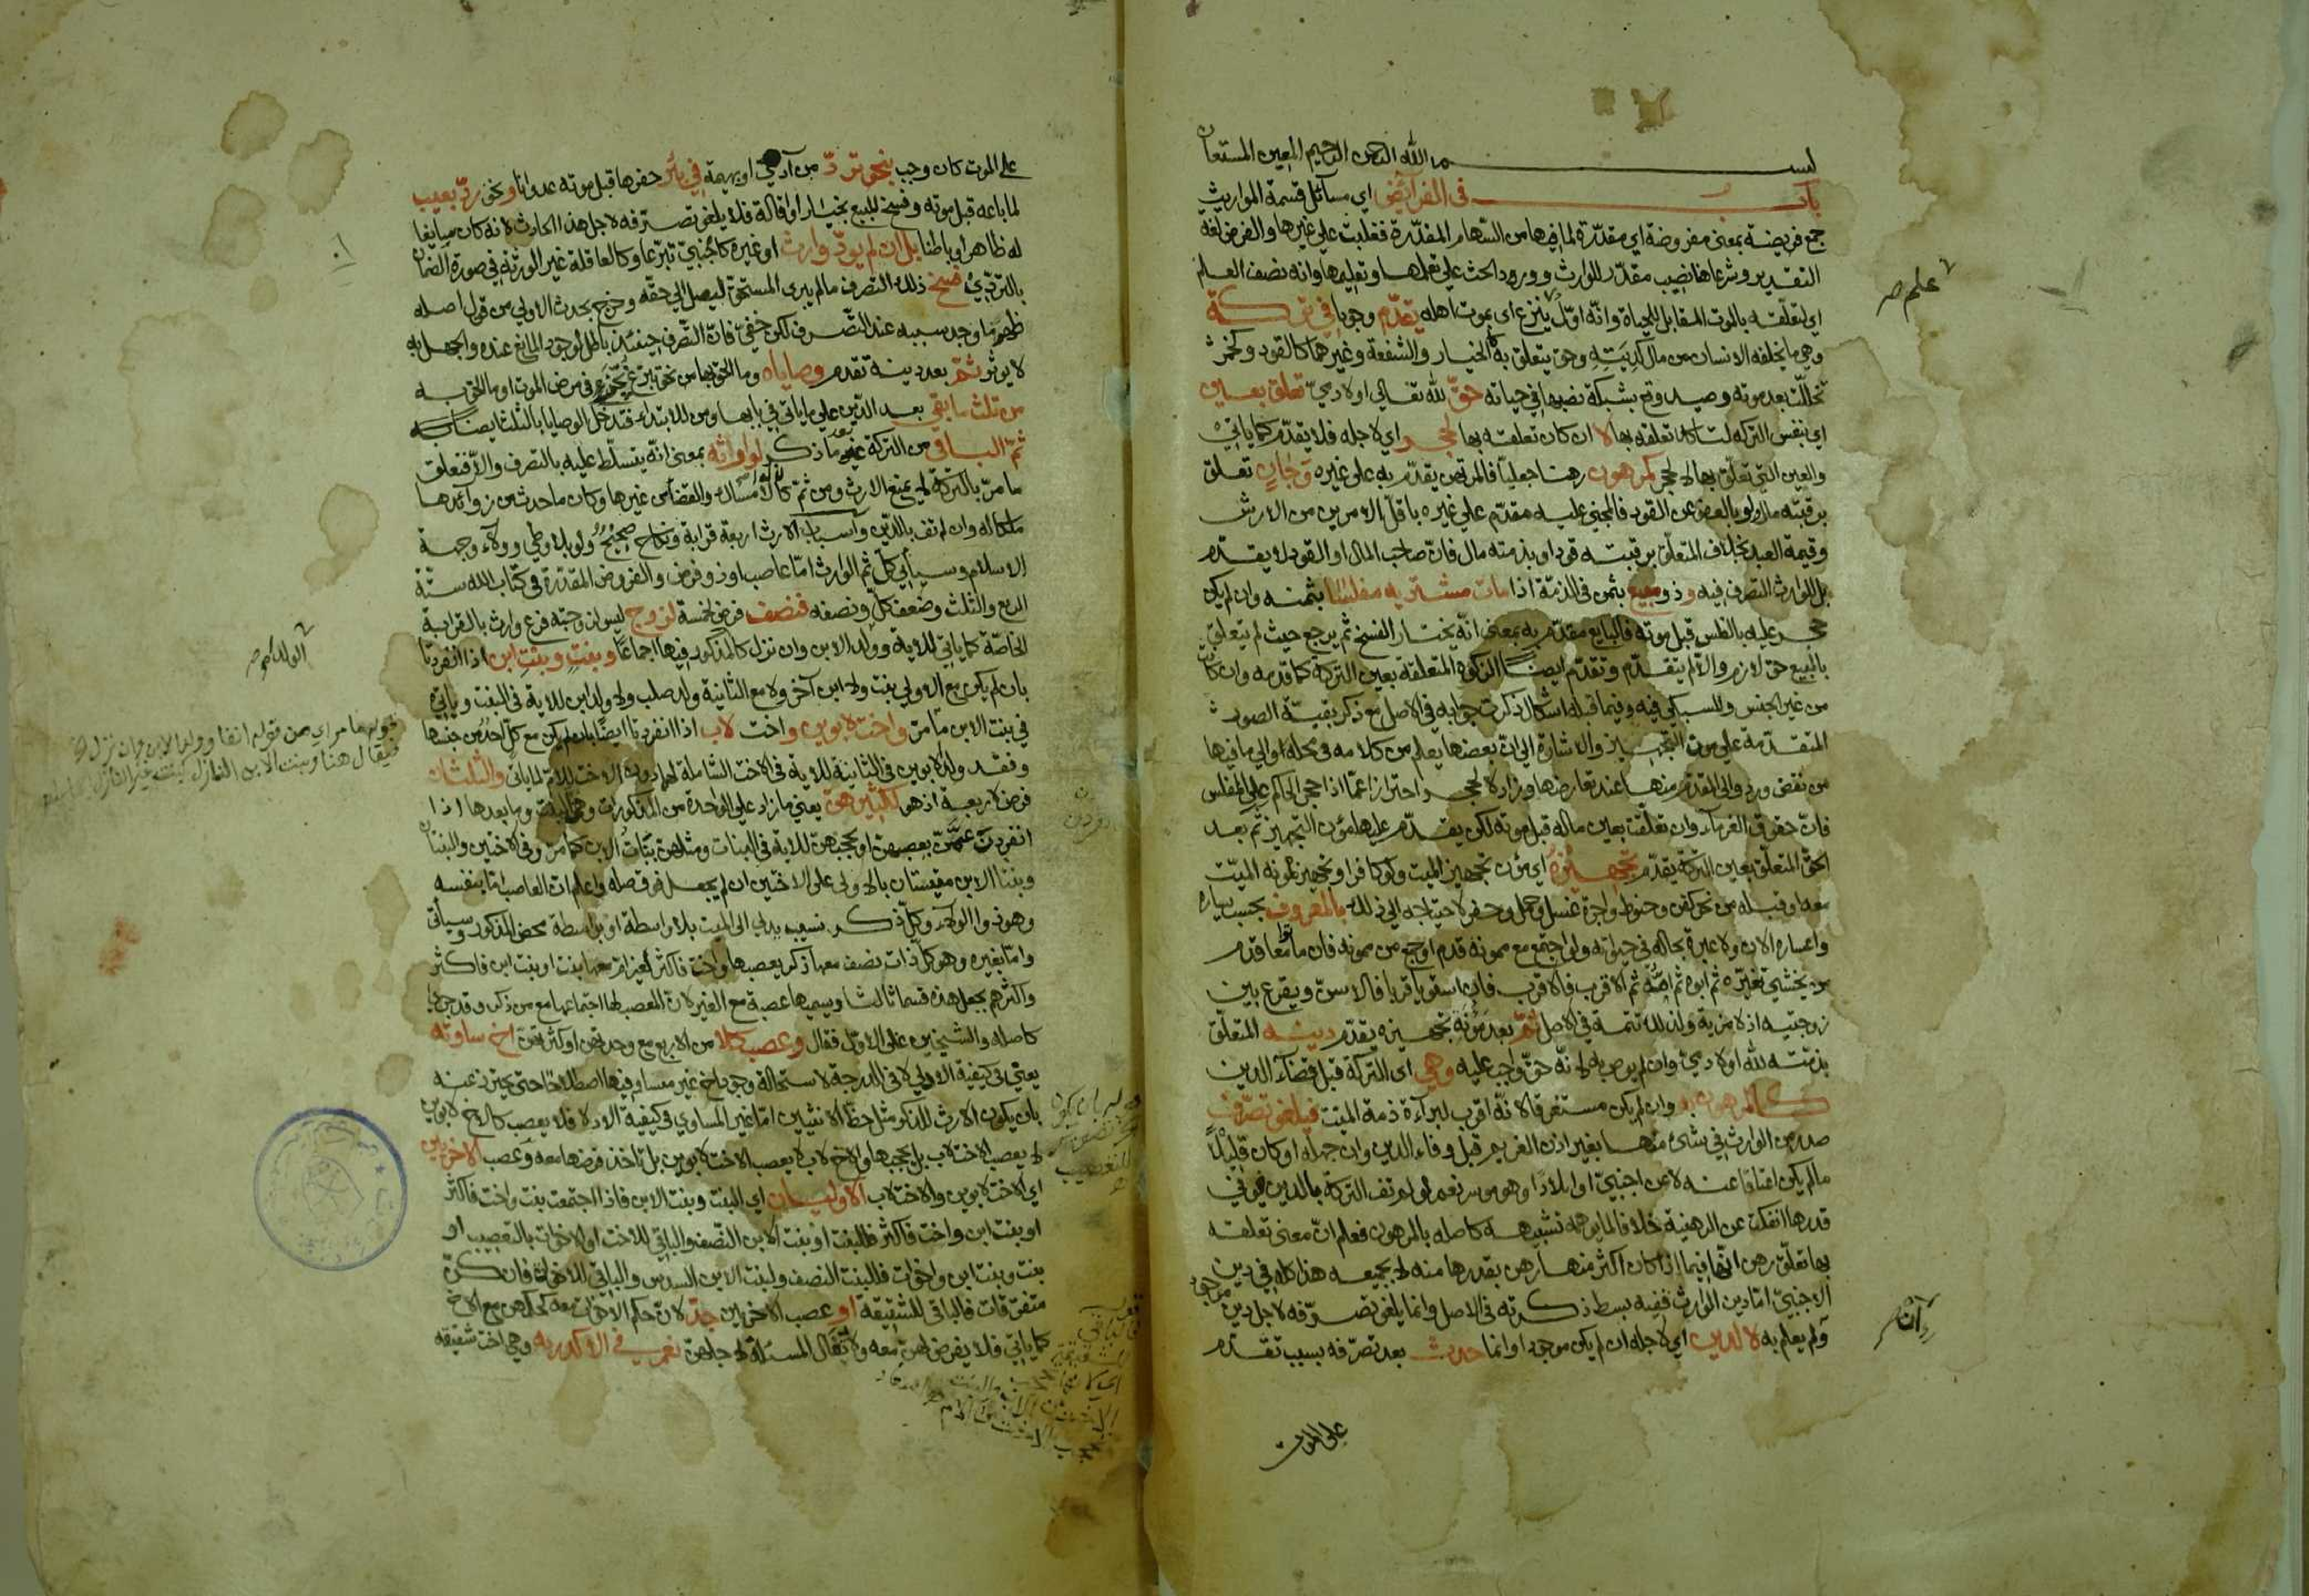 بسم الله الرحمن الرحيم المعين المستعان
باب في الفرائض اي مسائل قسمة المواريث
جمع فريضة بمعنى مفروضة اي مقدرة لما فيها من السهام المقدرة فغلبت على غيرها والفرض لغة
التقدير وشرعا هنا نصيب مقدر للوارث وورود الحث على تعلمها وتعليمها وانه نصف العلم
علم صح
اي لتعلقه بالموت المقابل للحياة وانه اول ينزع اي بموت اهله يقدم وجوبا في تركة
وهي ما يخلفه الانسان من مال كديته وحق يتعلق به كالخيار والشفعة وغيرهما كالقود وكخمر
تخللت بعد موته وصيد وقع بشبكة نصبها في حياته حق لله تعالى او لادمي تعلق بعين
اي بنفس التركة لتاكد تعلقه بها لا ان كان تعلقه بها لحجر اي لاجله فلا يقدم كما ياتي
والعين التي تعلق بها لا لحجر كمرهون رهنا جعليا فالمرتهن يقدم به على غيره وجان تعلق
برقبته مال ولو بالعفو عن القود فالمجني عليه مقدم على غيره باقل الامرين من الارش
وقيمة العبد بخلاف المتعلق برقبته قود او بذمته مال فان صاحب المال او القود لا يقدم
بل للوارث التصرف فيه وذو مبيع بثمن في الذمة اذا مات مشتريه مفلسا بثمنه وان لم يكن
حجر عليه بالفلس قبل موته فالبايع مقدم به بمعنى انه يختار الفسخ ثم يرجع حيث لم يتعلق
بالمبيع حق لازم والا لم يتقدم وتقدم ايضا الزكوة المتعلقة بعين التركة كما قدمه وان كان
من غير الجنس وللسبكي فيه وفيما قبله اشكال ذكرت جوابه في الاصل مع ذكر بقية الصور
المتقدمة على مون التجهيز والاشارة الى ان بعضها يعلم من كلامه في محله والى ما فيها
من نقض ورد والى المقدم منها عند تعارضها وزاد لا لحجر احترازا عما اذا حجر الحاكم على المفلس
فان حقوق الغرماء وان تعلقت بعين ماله قبل موته لكن يقدم عليها مون التجهيز ثم بعد
الحق المتعلق بعين التركة يقدم تجهيزه اي مون تجهيز الميت ولو كافرا وتجهيز ممونه الميت
معه او قبله من نحو كفن وحنوط واجرة غسل وحمل وحفر لاحتياجه الى ذلك بالمعروف بحسب يساره
واعساره الان ولا عبرة بحاله في حياته ولو اجتمع مع ممونه قدم او جمع من ممونه فان ماتوا معا قدم
من يخشى تغيره ثم ابوه ثم امه ثم الاقرب فالاقرب فان استويا قربا فالاسن ويقرع بين
زوجتيه اذ لا مزية ولذلك تتمة في الاصل ثم بعد مؤنة تجهيزه يقدم دينه المتعلق
بذمته لله او لادمي وان لم يوص به لانه حق واجب عليه وهي اي التركة قبل قضاء الدين
كالمرهون به وان لم يكن مستغرقا لانه اقرب لبراءة ذمة الميت فيلغى تصرف
صدر من الوارث في شئ منها بغير اذن الغريم قبل وفاء الدين وان جهله او كان قليلا
ما لم يكن اعتاقا عنه لا عن اجنبي او ايلادا وهو موسر نعم لو لم تف التركة بالدين فوفى
قدرها انفكت عن الرهنية خلافا لما يوهمه تشبيهه كاصله بالمرهون فعلم ان معنى تعلقه
بها تعلق رهن انها فيما اذا كان اكثر منها رهن بقدرها منه لا بجميعه هذا كله في دين
الاجنبي اما دين الوارث ففيه بسط ذكرته في الاصل وانما يلغى تصرفه لاجل دين موجود
ولم يعلم به لا لدين اي لاجله ان لم يكن موجودا وانما حدث بعد تصرفه بسبب تقدم
على الموت
على الموت كان وجب بنحو ترد من آدمي او بهيمة في بئر حفرها قبل موته عدوانا ونحو رد بعيب
لما باعه قبل موته وفسخ للبيع بخيار او اقالة فلا يلغى تصرفه لاجل هذا الحادث لانه كان سايغا
له ظاهرا وباطنا بل ان لم يود وارث او غيره كاجنبي تبرعا وكالعاقلة غير الورثة في صورة الضمان
بالتردي فسخ ذلك التصرف ما لم يبرئ المستحق ليصل الى حقه وخرج بحدث الاولى من قول اصله
ظهر ما وجد سببه عند التصرف لكن خفي فان التصرف حينئذ باطل لوجود المانع عنده والجهل به
لا يؤثر ثم بعد دينه تقدم وصاياه وما الحق بها من نحو تبرع نجز في مرض الموت او ما الحق به
من ثلث ما بقي بعد الدين على ما ياتي في بابها ومن للابتداء فتدخل الوصايا بالثلث ايضا
ثم الباقي من التركة بعد ما ذكر لوارثه بمعنى انه يتسلط عليه بالتصرف والا فتعلق
ما مر بالتركة لا يمنع الارث ومن ثم كان للوارث امساك والقضا من غيرها وكان ما حدث من زوائدها
ملكا له وان لم تف بالدين واسباب الارث اربعة قرابة ونكاح صحيح ولو بلا وطئ وولاء وجهة
الاسلام وسياتي كل ثم الوارث اما عاصب او ذو فرض والفروض المقدرة في كتاب الله ستة
الربع والثلث وضعف كل ونصفه فنصف فرض لخمسة لزوج ليس لزوجته فرع وارث بالقرابة
الولد كهو صح
الخاصة كما ياتي للاية وولد الابن وان نزل كالمذكور فيها اجماعا وبنت وبنت ابن اذا انفردتا
بان لم يكن مع الاولى بنت ولا ابن آخر ولا مع الثانية ولد صلب ولا ولد ابن للاية في البنت وياتي
في بنت الابن ما مر واخت لابوين واخت لاب اذا انفردتا ايضا بان لم يكن مع كل احد من جنسها
وفقد ولد الابوين في الثانية للاية في الاخت الشاملة لهما دون الاخت للام لما ياتي والثلثان
فرض لاربعة اذ هو لاكثرهن يعني ما زاد على الواحدة من المذكورات وهي البنت وما بعدها اذا
انفردن عمن يعصبهن او يحجبهن للاية في البنات ومثلهن بنات الابن كما مر وفي الاختين والبنتان
وبنتا الابن مقيستان بالاولى على الاختين ان لم يجعل فوق صلة واعلم ان العاصب اما بنفسه
وهو ذو الولاء وكل ذكر نسيب يدلي الى الميت بلا واسطة او بواسطة محض الذكور وسيأتي
واما بغيره وهو كل ذات نصف معها ذكر يعصبها واخت فاكثر لغير ام معها بنت او بنت ابن فاكثر
واكثرهم يجعل هذه قسما ثالثا ويسميها عصبة مع الغير لان التعصيب لها اجتماعها مع من ذكر وقد جرى
كاصله والشيخين على الاول فقال وعصب كلا من الاربع مع وحدتهن او كثرتهن اخ ساوته
يعني في كيفية الادلاء لا في الدرجة لاستحالة وجود اخ غير مساو فيها اصطلاحا حتى يحترز عنه
بان يكون الارث للذكر مثل حظ الانثيين اما غير المساوي في كيفية الادلاء فلا يعصب كالاخ لابوين
لا يعصب الاخت لاب بل يحجبها والاخ لاب لا يعصب الاخت لابوين بل تاخذ فرضها معه وعصب الاخريين
اي الاخت لابوين والاخت لاب الاوليان اي البنت وبنت الابن فاذا اجتمعت بنت واخت فاكثر
او بنت ابن واخت فاكثر فللبنت او بنت الابن النصف والباقي للاخت او الاخوات بالتعصيب او
بنت وبنت ابن واخوات فللبنت النصف ولبنت الابن السدس والباقي للاخوات فان كن
متفرقات فالباقي للشقيقة او عصب الاخريين جد لان حكم الاخوات معه كحكمهن مع الاخ
كما ياتي فلا يفرض لهن معه ولا تعال المسئلة لاجلهن نعم في الاكدرية وهي اخت شقيقة